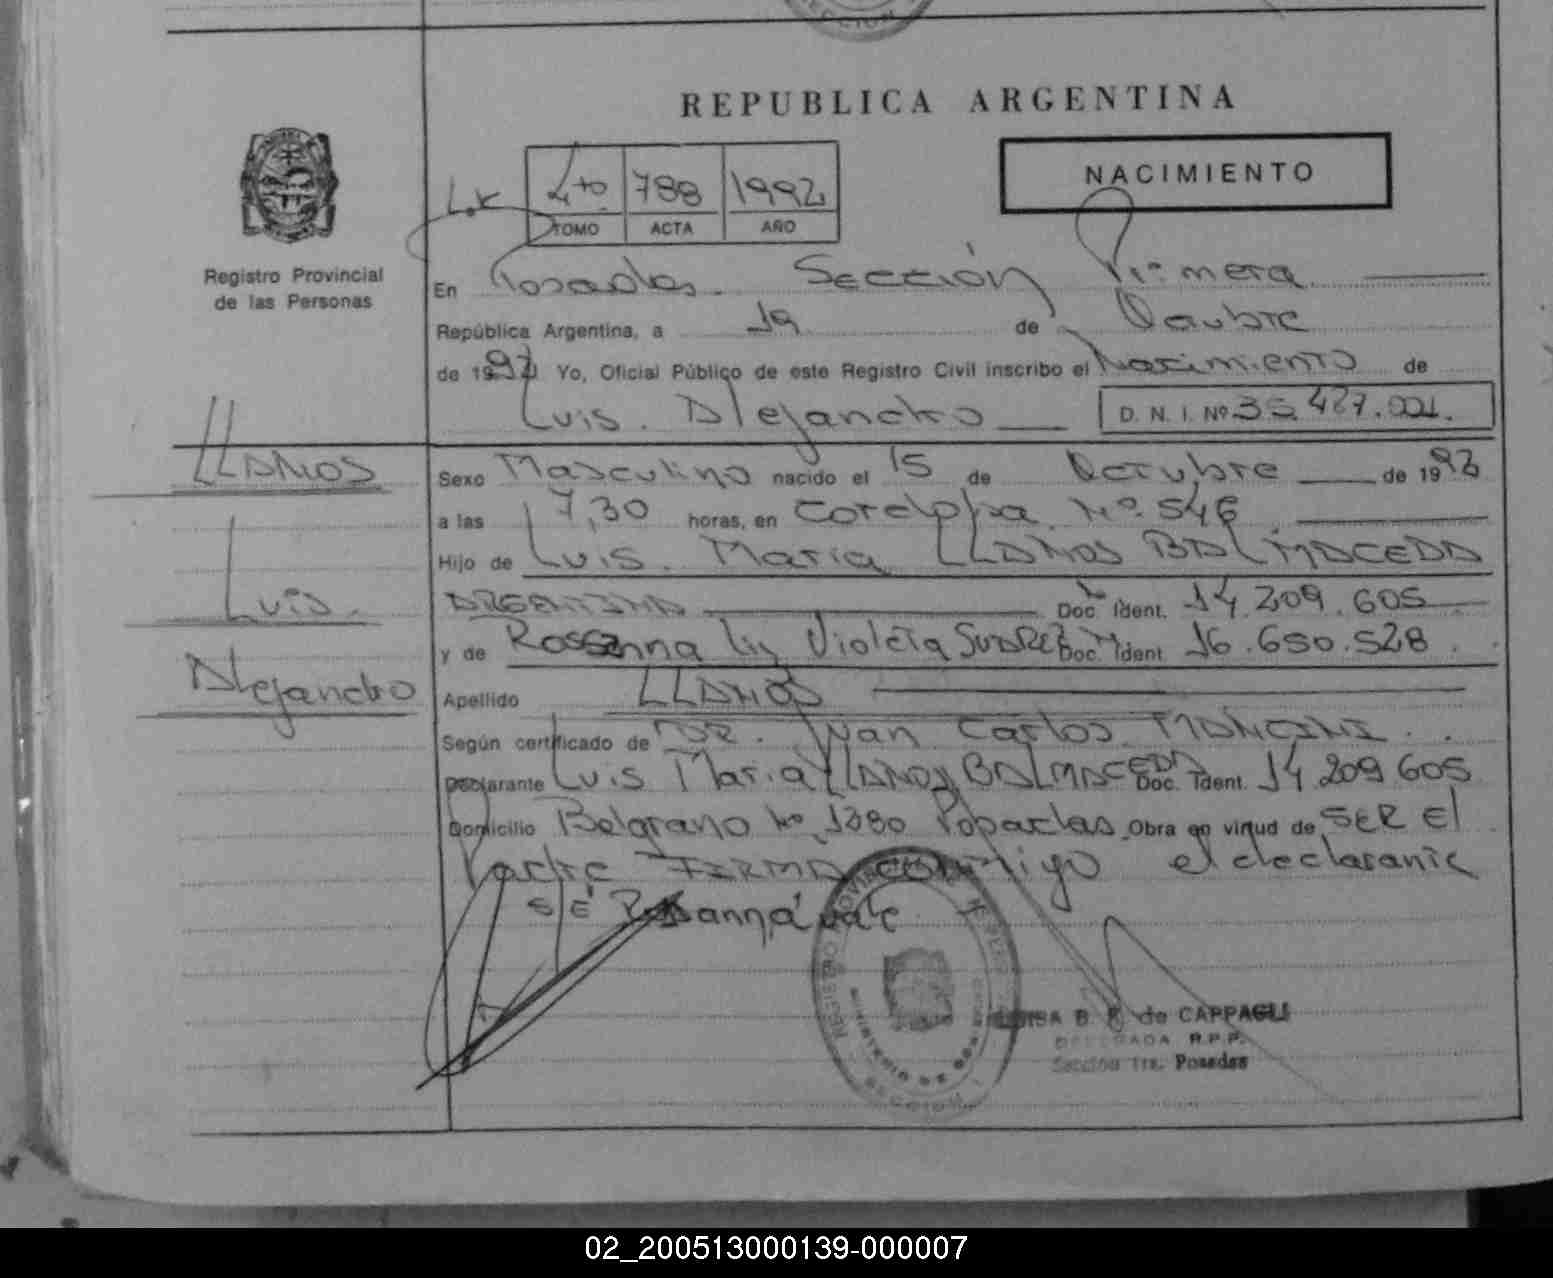 REPUBLICA ARGENTINA
NACIMIENTO
4to 788 1992
TOMO ACTA AÑO
Registro Provincial
de las Personas
En Posadas. Sección Primera
República Argentina, a 19 de Octubre
de 1992 Yo, Oficial Público de este Registro Civil inscribo el Nacimiento de
Luis. Alejandro
D. N. I. Nº 35.427.001.
LLANOS
Luis.
Alejandro
Sexo Masculino nacido el 15 de Octubre de 1992
a las 7,30 horas, en Cordoba Nº 546
Hijo de Luis. Maria LLANOS BALMACEDA
ARGENTINA Doc. Ident. 14.209.605
y de Rossanna Violeta SUAREZ Doc. Ident. 16.650.528
Apellido LLANOS
Según certificado de DR. Juan Carlos MANCINI.
Declarante Luis Maria LLANOS BALMACEDA Doc. Ident. 14 209 605
Domicilio Belgrano Nº 1280 Posadas Obra en virtud de SER El
Padre FIRMA conmigo el declarante
S/E Rosanna vale
B. de CAPPAGLI
DELEGADA R.P.P.
Sección 1ra. Posadas
02_200513000139-000007